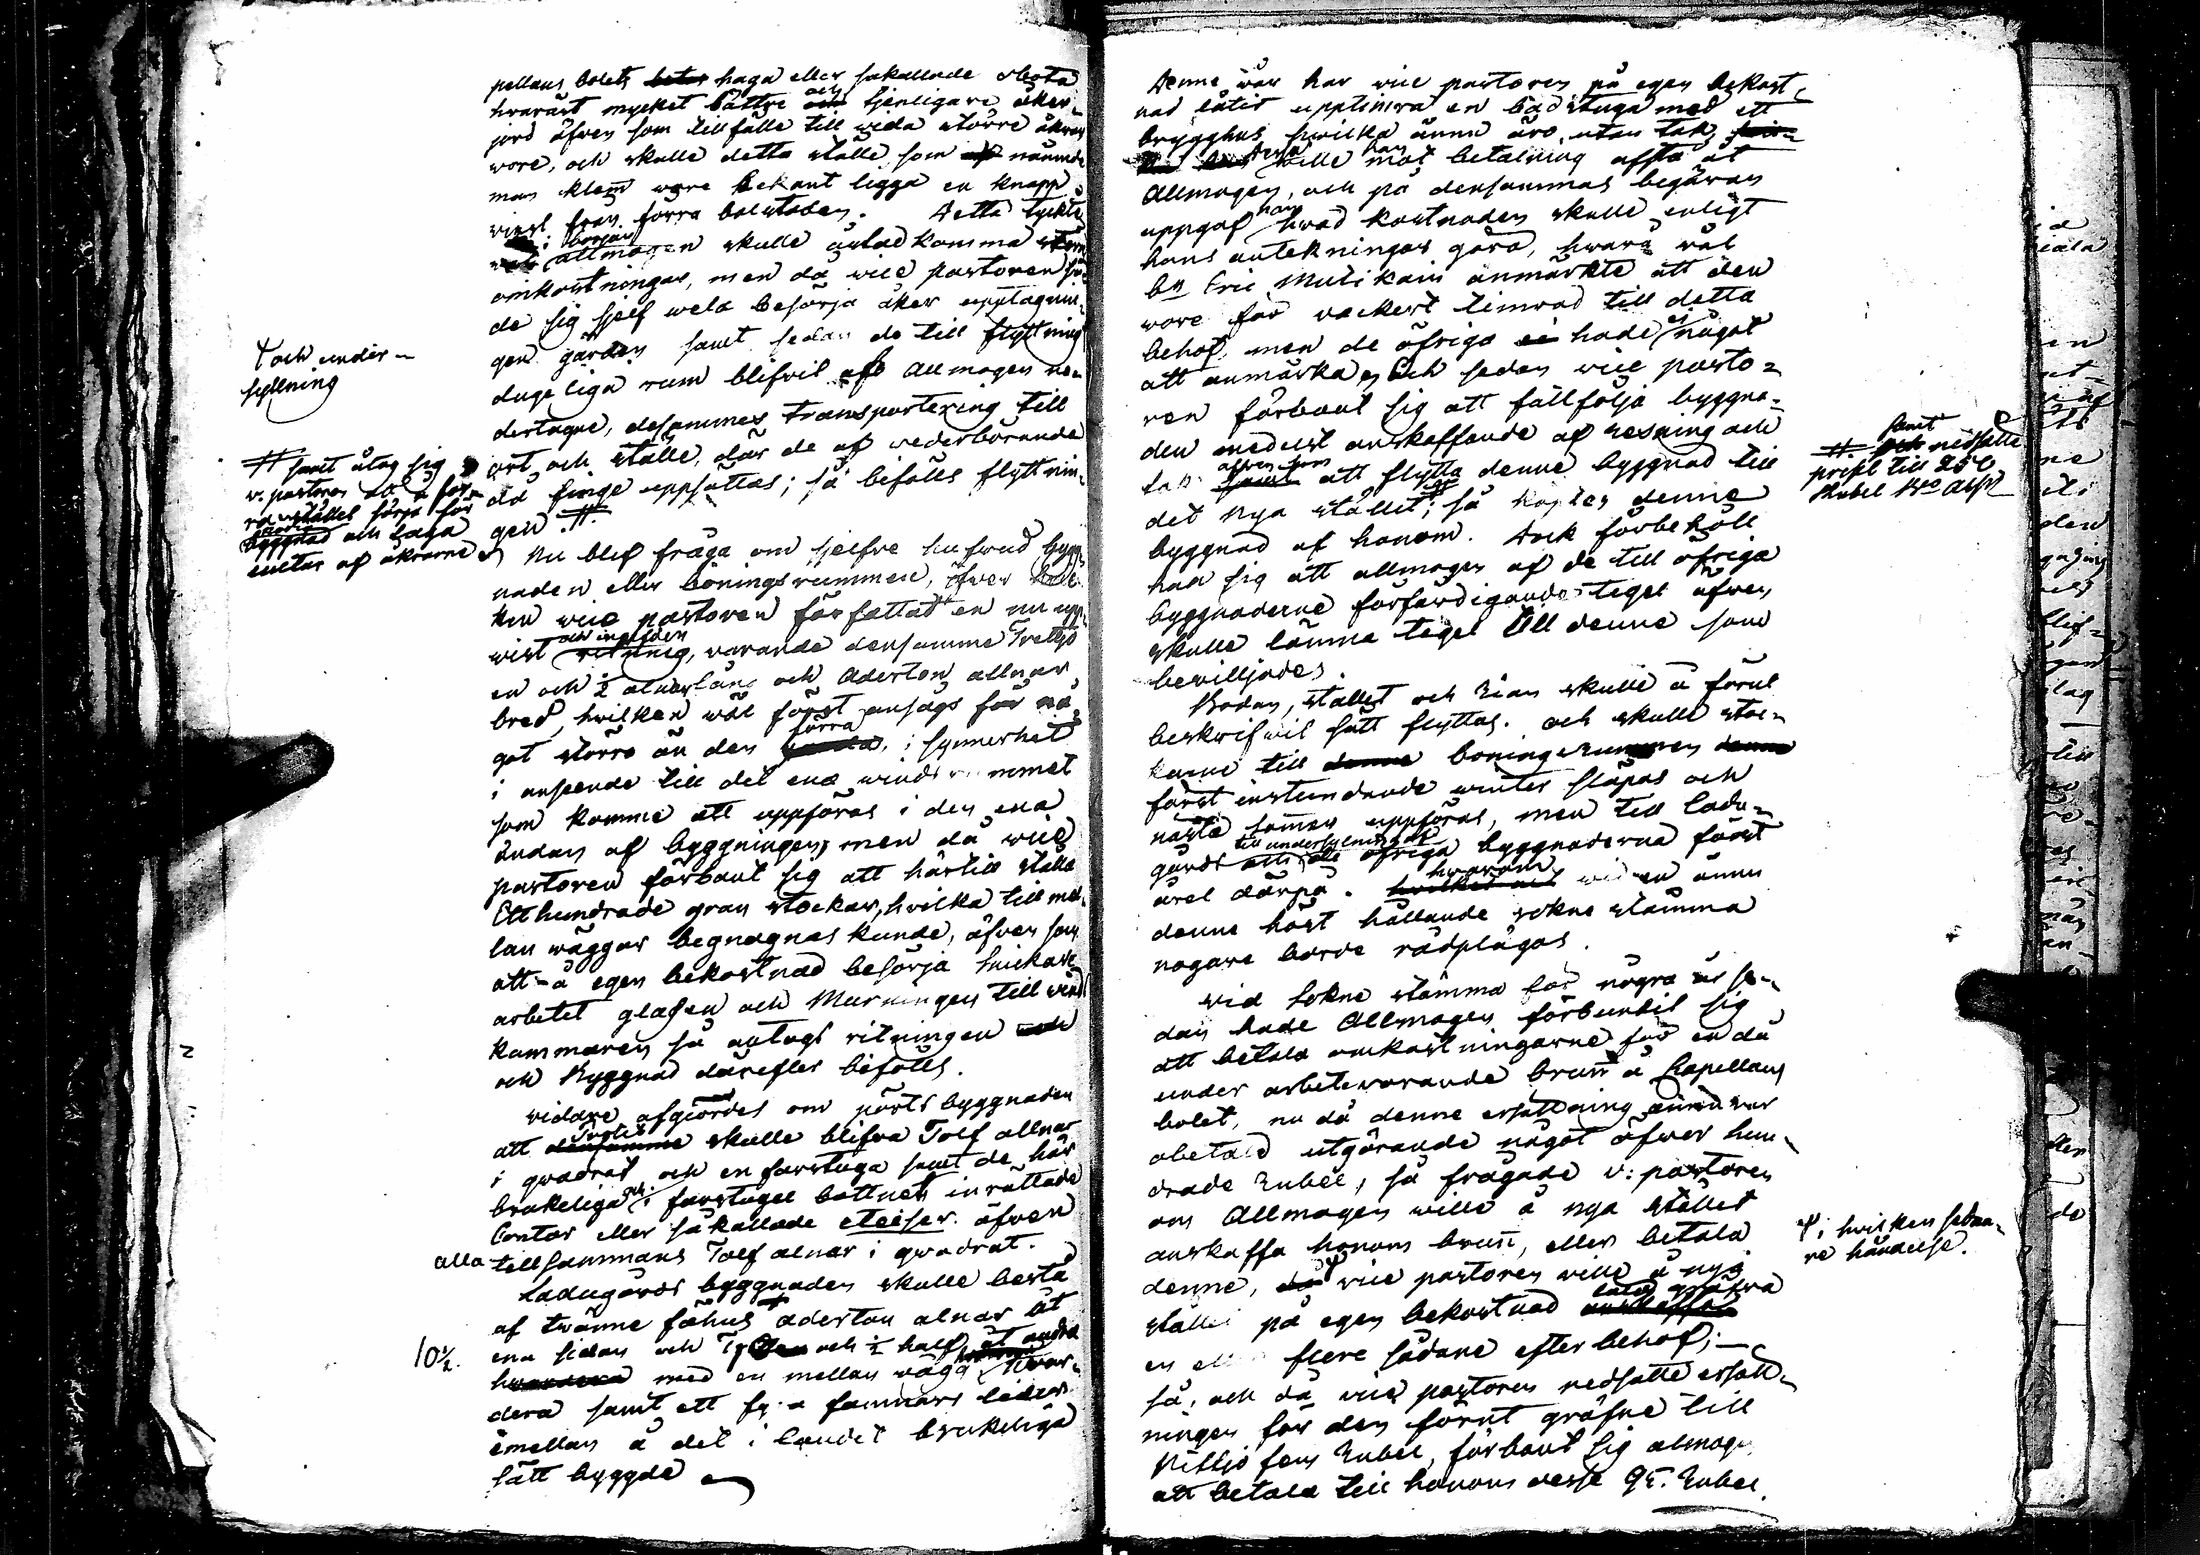 pellans bolets haga eller såkallade skota
hvaräst mycket bättre och tjenligare åker-
jord äfven som tillfälle till vida större åkrar
wore, och skulle detta ställe, som nämnde
man klem̄ wore bekant ligga en knapp
från förra bolstaden. Detta tyckte
i början allmogen skulle åstadkomma
omkostningar, men då vice pastoren
de sig sjelf wela besörja åker upptagnin-
gen gärden samt sedan de till flyttning
dugeliga rum blifvit af Allmogen ne-
dertagne, desammes transportering till
ort och ställe, där de af vederbörande
då finge uppsättas; så bifölls flyttnin-
gen #.
Nu blef fråga om sjelfve hufvud bygg-
naden eller boningsrummen, öfver hvil-
ken vice pastoren författat en nu upp-
vist ritning, varande densamme Trettio
en och ½ alnar lång och Aderton allnar
bred, hvilken väl först ansågs för nå-
got större än den förra, i synnerhet
i anseende till det ena vindsrummet
som komme att uppföras i den ena
ändan af byggningen; men då vice
pastoren förbant sig att härtill ställa
Etthundrade gran stockar, hvilka till mel-
lan wäggar begnagnas kunde, äfven som
att å egen bekostnad besörja snickare
arbetet glasen och Murningen till vind
kammaren så antogs ritningen
och Byggnad därefter bifölls.
vidare afgiordes om pörts byggnaden
att skulle blifva Tolf allnar
i qvadrat och en farstuga samt de här
brukeliga i farstugu bottnen inrättade
Contor eller så kallade eteiser äfven
alla tillsammans Tolf alnar i qvadrat.
Ladugårds byggnaden skulle bestå
af twänne fähus aderton alnar åt
ena sidan och och ½ half åt andra
10½.
med en mellan vägg
dera samt ett famnars lider
emellan å det i landet brukeliga
sätt byggde
T och under-
fyllning
# samt åtog sig
v. pastoren att å för-
ra stället sörja för
och taga
enter af åkrarne
Denne wår har vice pastoren på egen bekost-
nad låtit upptimra en badstuga med ett
brygghus hwilka ännu äro utan tak,
dessa wille han mot betalning afstå åt
Allmogen, och på densammas begäran
uppgaf han hwad kostnaden skulle enligt
hans antekningar göra, hwarå väl
bn Eric Mutikain anmärkte att den
wore för vackert timrad till detta
behof, men de öfriga hade ej något
att anmärka, Och sedan vice pasto-
ren förbant sig att fullfölja byggna-
den medelst anskaffande af resning och
tak äfven som att flytta denne byggnad till
det nya stället; # så köptes denne
byggnad af honom. Dock förbehöll
han sig att allmogen af de till öfriga
byggnaderne förfärdigande teget äfven
skulle lämne tegel till denne som
bewilljades.
Boden, stallet och Rian skulle å förut
beskrifvit sätt flyttas. och skulle stoc-
karne till boningsrummen
först instundande winter släpas och
nästa som̄ar uppföras, men till ladu-
gårds till underfylning af öfriga byggnaderna först
året därpå. hwarom wid en ännu
denne höst hållande sokne stämma
nogare borde rådplägas.
Wid sokne stämma för några år se-
dan hade Allmogen förbundit sig
att betala omkostningarne för en då
under arbete varande brun̄ å Capellans
bolet, nu då denne ersättning ännu var
obetald utgörande något öfwer hun-
drade Rubel, så frågade v: pastoren
om Allmogen wille å nya stället
anskaffa honom brun̄, eller betala
denne, vice pastoren wille å nya
stället på egen bekostnad låta gräfva
en eller flere sådane efter behof;
så, och då vice pastoren nedsatte ersätt-
ningen för den förut gräfne till
Nittio fem Rubel, förbant sig almogen
att betala till honom desse 95. Rubel.
# samt nedsatte
priset till 250
Rubel Bco Ass
i hvilken sedna-
re händelse.